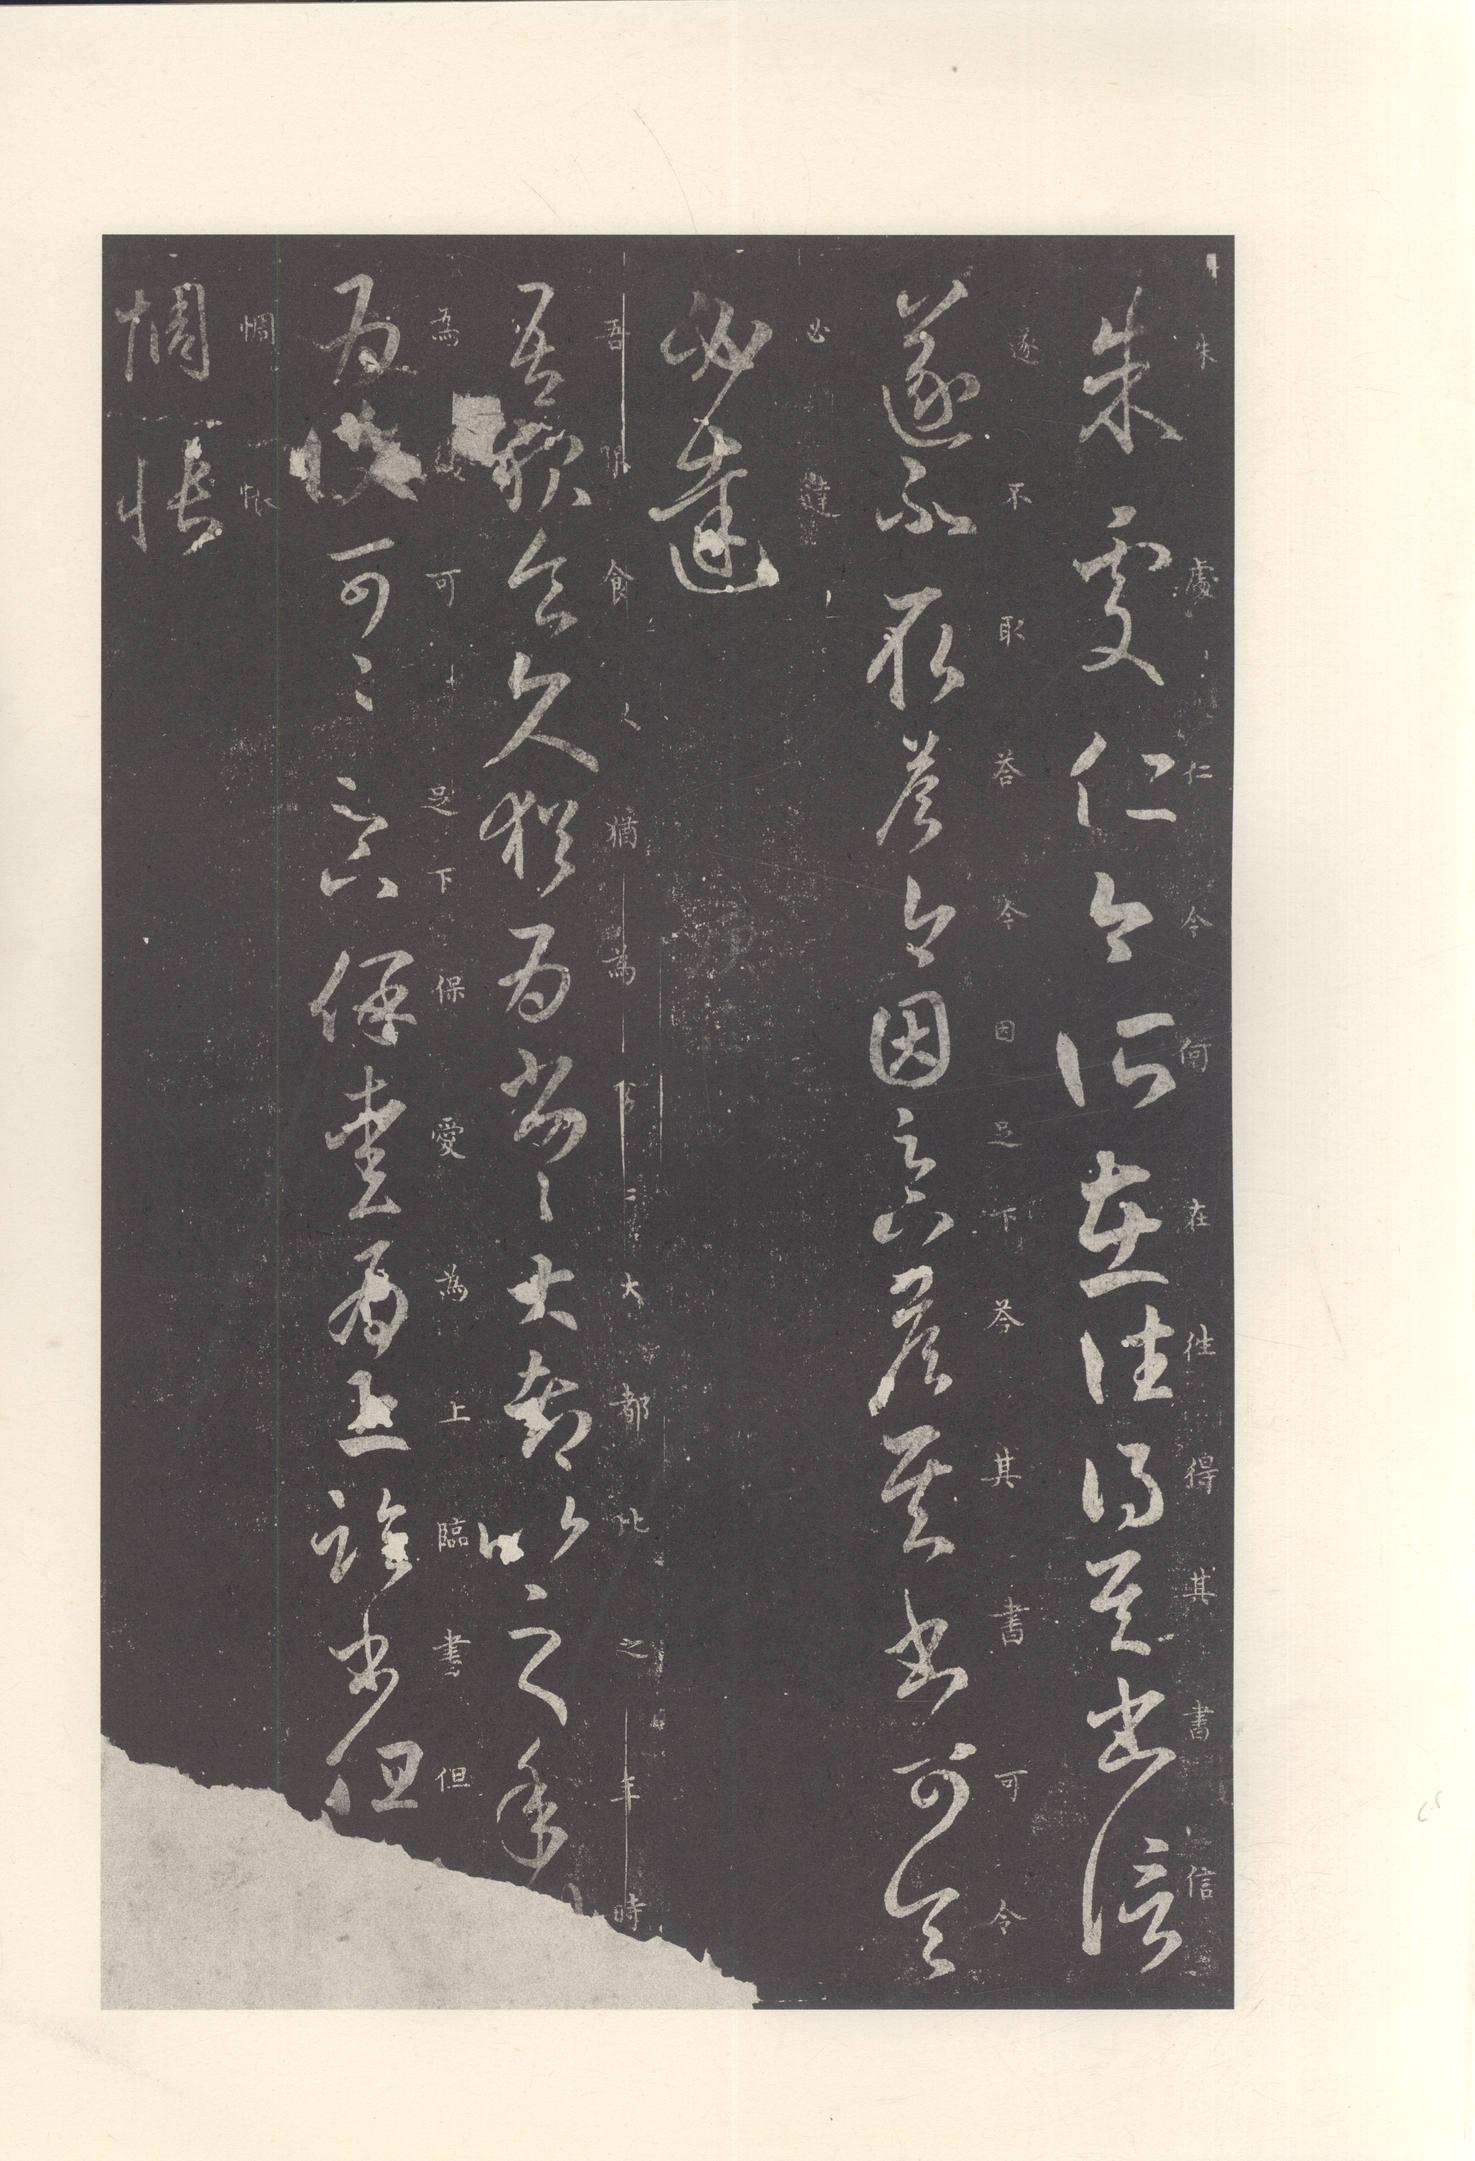 朱處仁今何在往得其書信
朱處仁今何在往得其書信
遂不取荅今因足下荅其書可令
遂不取答今因足下答其書可令
必達
必達
吾服食猶為大都比之年時
吾服食久猶為劣劣大都比之年
為復可足下保愛為上臨書但
為復可〻足下保愛為上臨書但
惆悵
惆悵